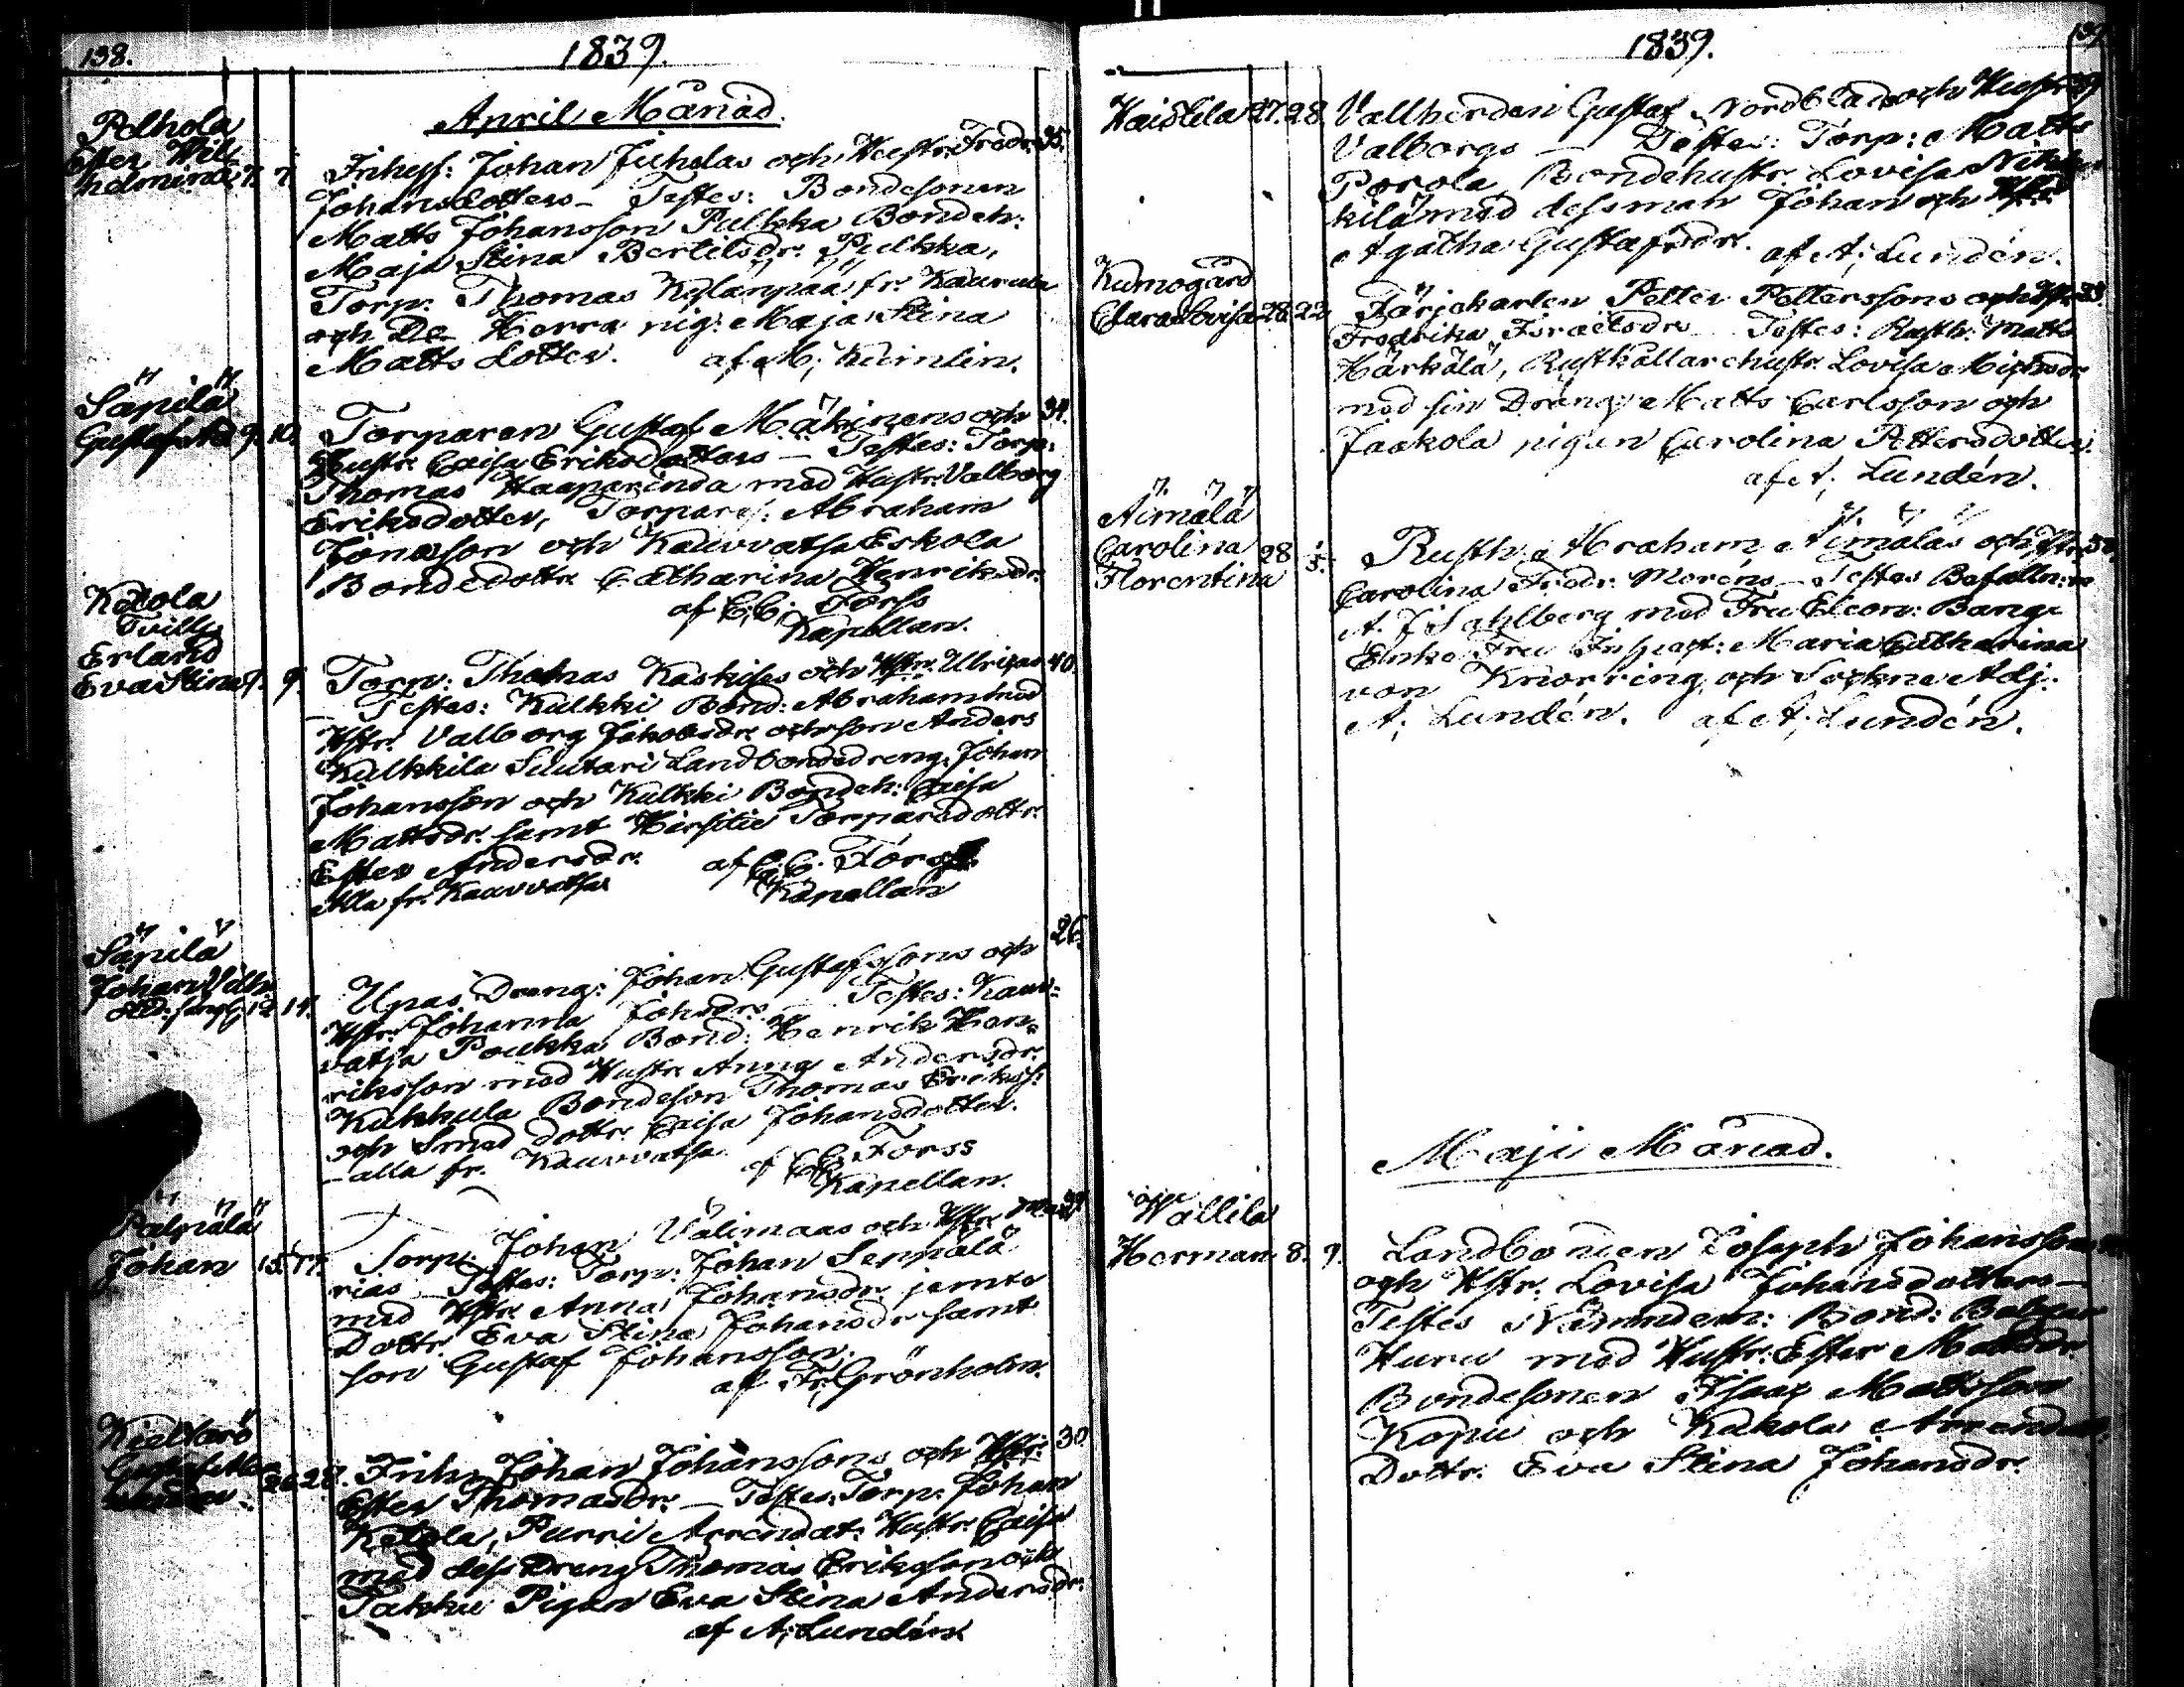 138.
1839.
April Månad.
Pelhola
Ester Wil
helmina 7. 7.
Inhyss: Johan Juholas och Hustr. Fredr. 35.
Johansdotters – Testes: Bondesonen
Matts Johansson Pulkka Bondeh:
Maja Stina Bertilsdr. Pulkka,
Torp. Thomas Kylänpää fr. Kaurula
och De Herra pig: Maja Stina
Matts dotter. af M; Kumlin.
Säpilä
Gustafva 9. 10.
Torparen Gustaf Mäkinens och 34.
Hustr. Caisa Eriksdotters – Testes: Torp:
Thomas Haaparinda med Hustr. Valborg
Eriksdotter, Torpares: Abraham
Jonasson och Kauvvatsa Eskola
Bondedottr. Catharina Henriksdr.
af C; C; Forss
Kapellan.
Ketola
Tvill:
Erland
Eva Stina 9. 9.
Torp: Thomas Kaskis och Hstr. Ulricas 40.
– Testes: Kulkki Bond: Abraham med
Hstr. Valborg Jakobsdr. och son Anders
Kulkkila Suutari Landbondedreng: Johan
Johansson och Kulkki Bondeh: Caisa
Mattsdr. samt Hirsitie Torparedottr.
Ester Andersdr. af C; C. Forss
Alla fr. Kauvvatsa Kapellan
Säpilä
Johan Vilh.
12 14.
26.
Upas Dreng: Johan Gustafssons och
Hstr. Johanna Johsdrs. – Testes: Kauv-
vatsa Poukka Bond: Henrik Hen-
riksson med Hustr. Anna Andersdr.
Kukkula Bondeson Thomas Erikss:
och Smed dottr. Caisa Johansdotter.
– alla fr. Kauvvatsa af C; C; Forss
Kapellan.
Johan 15. 17.
Torp. Johan Välimaas och Hstr. Ma-
rias – Testes: Torp: Johan Seppälä
med Hstr. Anna Johansdr. jemte
Dottr. Eva Stina Johansdr. samt
son Gustaf Johansson.
af Fr. Grönholm.
26 28.
Inhys. Johan Johanssons och Hstr. 30
Ester Thomasdr. – Testes: Torp: Johan
Ketola, Purri Arrendat: Hustr. Caisa
med dess Dreng Thomas Eriksson och
Takku Pigan Eva Stina Andersdr.
af A; Lundén.
1839.
139.
Haistila 27. 28.
Vallherden Gustaf Nordblads och Hustr.
Valborgs – Testes: Torp: Matts
Porola, Bondehustr. Lovisa Nik-
kilä med dess man Johan och Hstr.
Agatha Gustafsdr. af A; Lundén.
Kumogård
Clara Lovisa 28.
Färjekarlen Petter Petterssons och Hstr.
Fredrika Israelsdrs – Testes: Rusth: Matts
Härkälä, Rusthållarehustr. Lovisa
med sin Dräng Matts Carlsson och
Jaakola pigan Carolina Pettersdotter.
af A; Lundén.
Äimälä
Carolina 28 5.
Florentina
Rusth: Abraham Äimäläs och Hstr.
Carolina Fredr. Moréns – Testes Befalln:
A. J. Sahlberg med Fru Eleon: Bange
Enke Fru Inspect: Maria Catharina
von Knorring och Sockne Adj:
A; Lundén. af A; Lundén.
Maji Månad.
Wallila
Herman 8. 9.
Landbonden Joseph Johanssons
och Hstr. Lovisa Johansdotters –
Testes Nämndem: Bond:
Huru med Hustr: Ester Mattsdr.
Bondesonen Isaac Mattsson
Kopu och Kakola
Dottr. Eva Stina Johansdr.